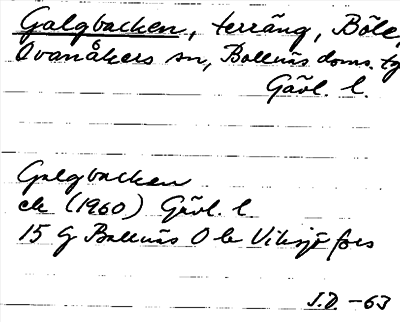 Galgbacken, terräng, Böle,
Ovanåkers sn, Bollnäs doms. tg
Gävl. l.
Galgbacken
ek (1960) Gävl. l
15 G Bollnäs 0 b Viksjöfors
J.D. -63